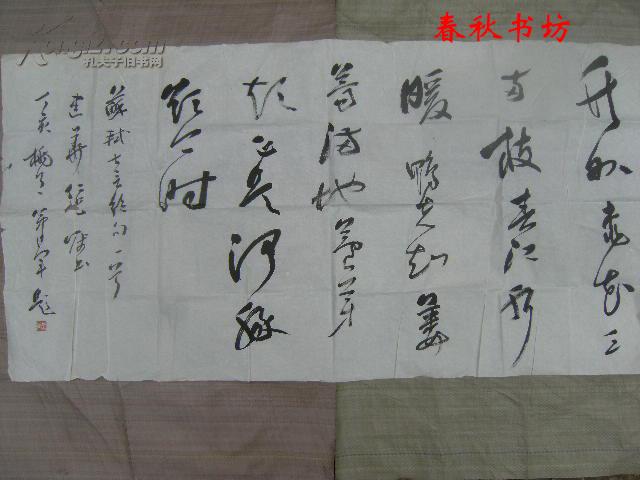 春秋书坊
孔夫子旧书网
竹外桃花三
两枝春江水
暖鸭先知蒌
蒿满地芦芽
短正是河豚
欲上时
蘇軾七言绝句一首
嘱书
丁亥 题